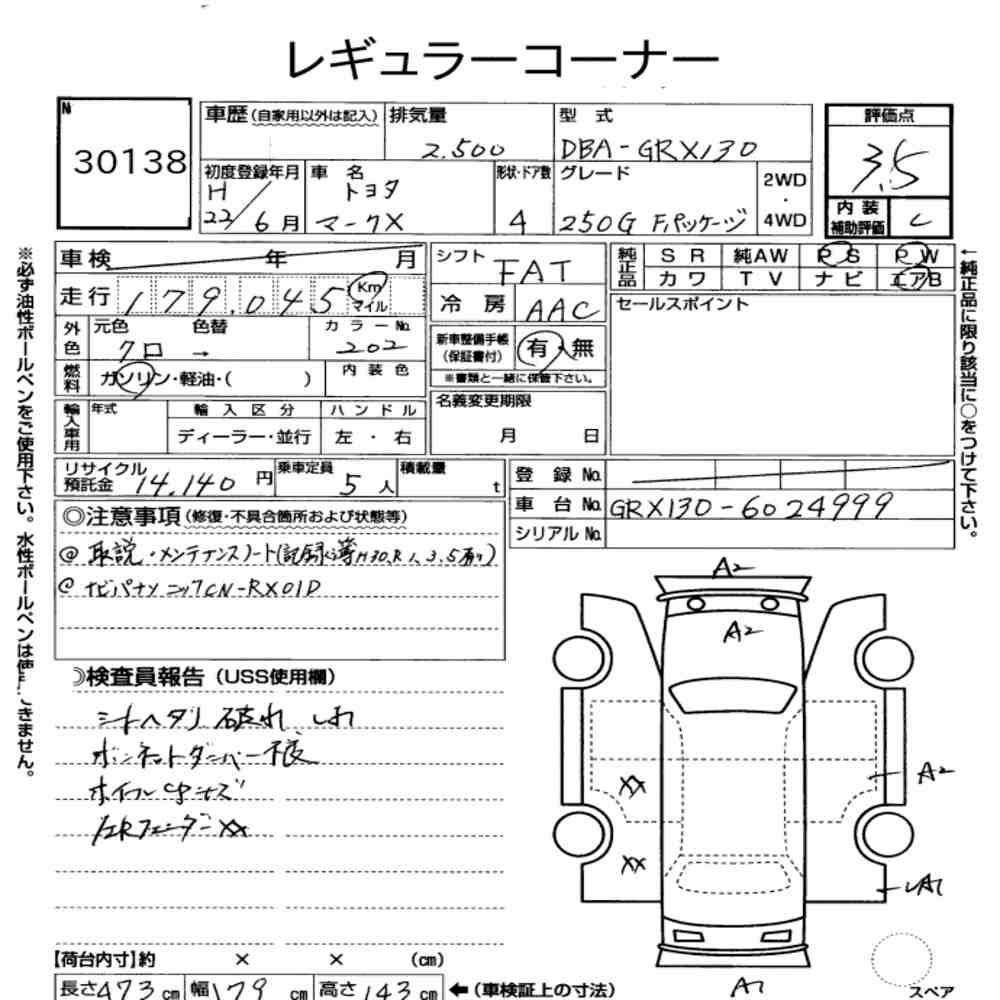 レギュラーコーナー
N
30138
車歴(自家用以外は記入)
排気量
2.500
型 式
DBA-GRX130
評価点
3.5
初度登録年月
H
22/6月
車 名
トヨタ
マークX
形状・ドア数
4
グレード
250G F.パッケージ
2WD
・
4WD
内 装
補助評価
C
車検 年 月
走行 179.045 Km
マイル
シフト
FAT
冷 房
AAC
純正品
S R 純AW P S P W
カ ワ T V ナ ビ エアB
セールスポイント
外色
元色 色替
クロ →
カ ラ ー No.
202
内 装 色
燃料
ガソリン・軽油・( )
新車整備手帳
(保証書付)
有・無
※書類と一緒に保管下さい。
輸入車用
年式
輸 入 区 分
ディーラー・並行
ハ ン ド ル
左 ・ 右
名義変更期限
月 日
リサイクル
預託金 14.140 円
乗車定員
5 人
積載量
t
登 録 No.
車 台 No. GRX130-6024999
シリアル No.
◎注意事項(修復・不具合箇所および状態等)
@ 取説・メンテナンスノート(記録簿H30,R1,3,5有り)
@ ナビパナソニックCN-RX01D
検査員報告(USS使用欄)
シートヘタリ 破れ しわ
ボンネットダンパー不良
ホイールキャップキズ
左Rフェンダー XX
A2
A2
XX
A2
XX
A1
A1
スペア
【荷台内寸】約 × × (cm)
長さ473cm 幅179cm 高さ143cm
←(車検証上の寸法)
※必ず油性ボールペンをご使用下さい。水性ボールペンは使できません。
←純正品に限り該当に○をつけて下さい。